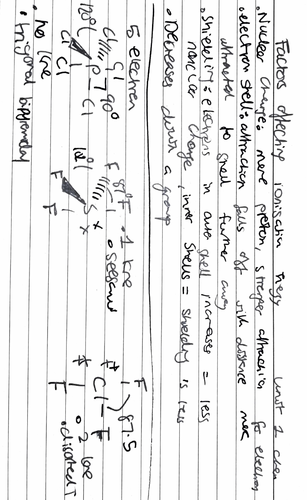 Factors affecting ionisation energy Unit 1 chem
• Nuclear charge: more protons, stronger attraction for electron
• electron shell: attraction falls off with distance more
attraction to shell further away
• Shielding: electrons in outer shell increases = less
nuclear charge, inner shells = shielding is less
• Decreases down a group
5 electron
Cl Cl
120° P 90°
Cl Cl
Cl
• no lone
• trigonal bipyramidal
F 87° F • 1 lone
S x • seesaw
F F
F
Cl – F 87.5
F • 2 lone
• distorted T